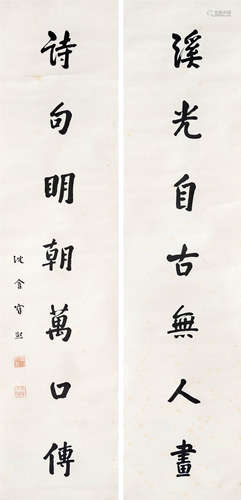 溪光自古無人畫
詩句明朝萬口傳
沈盦寶熙